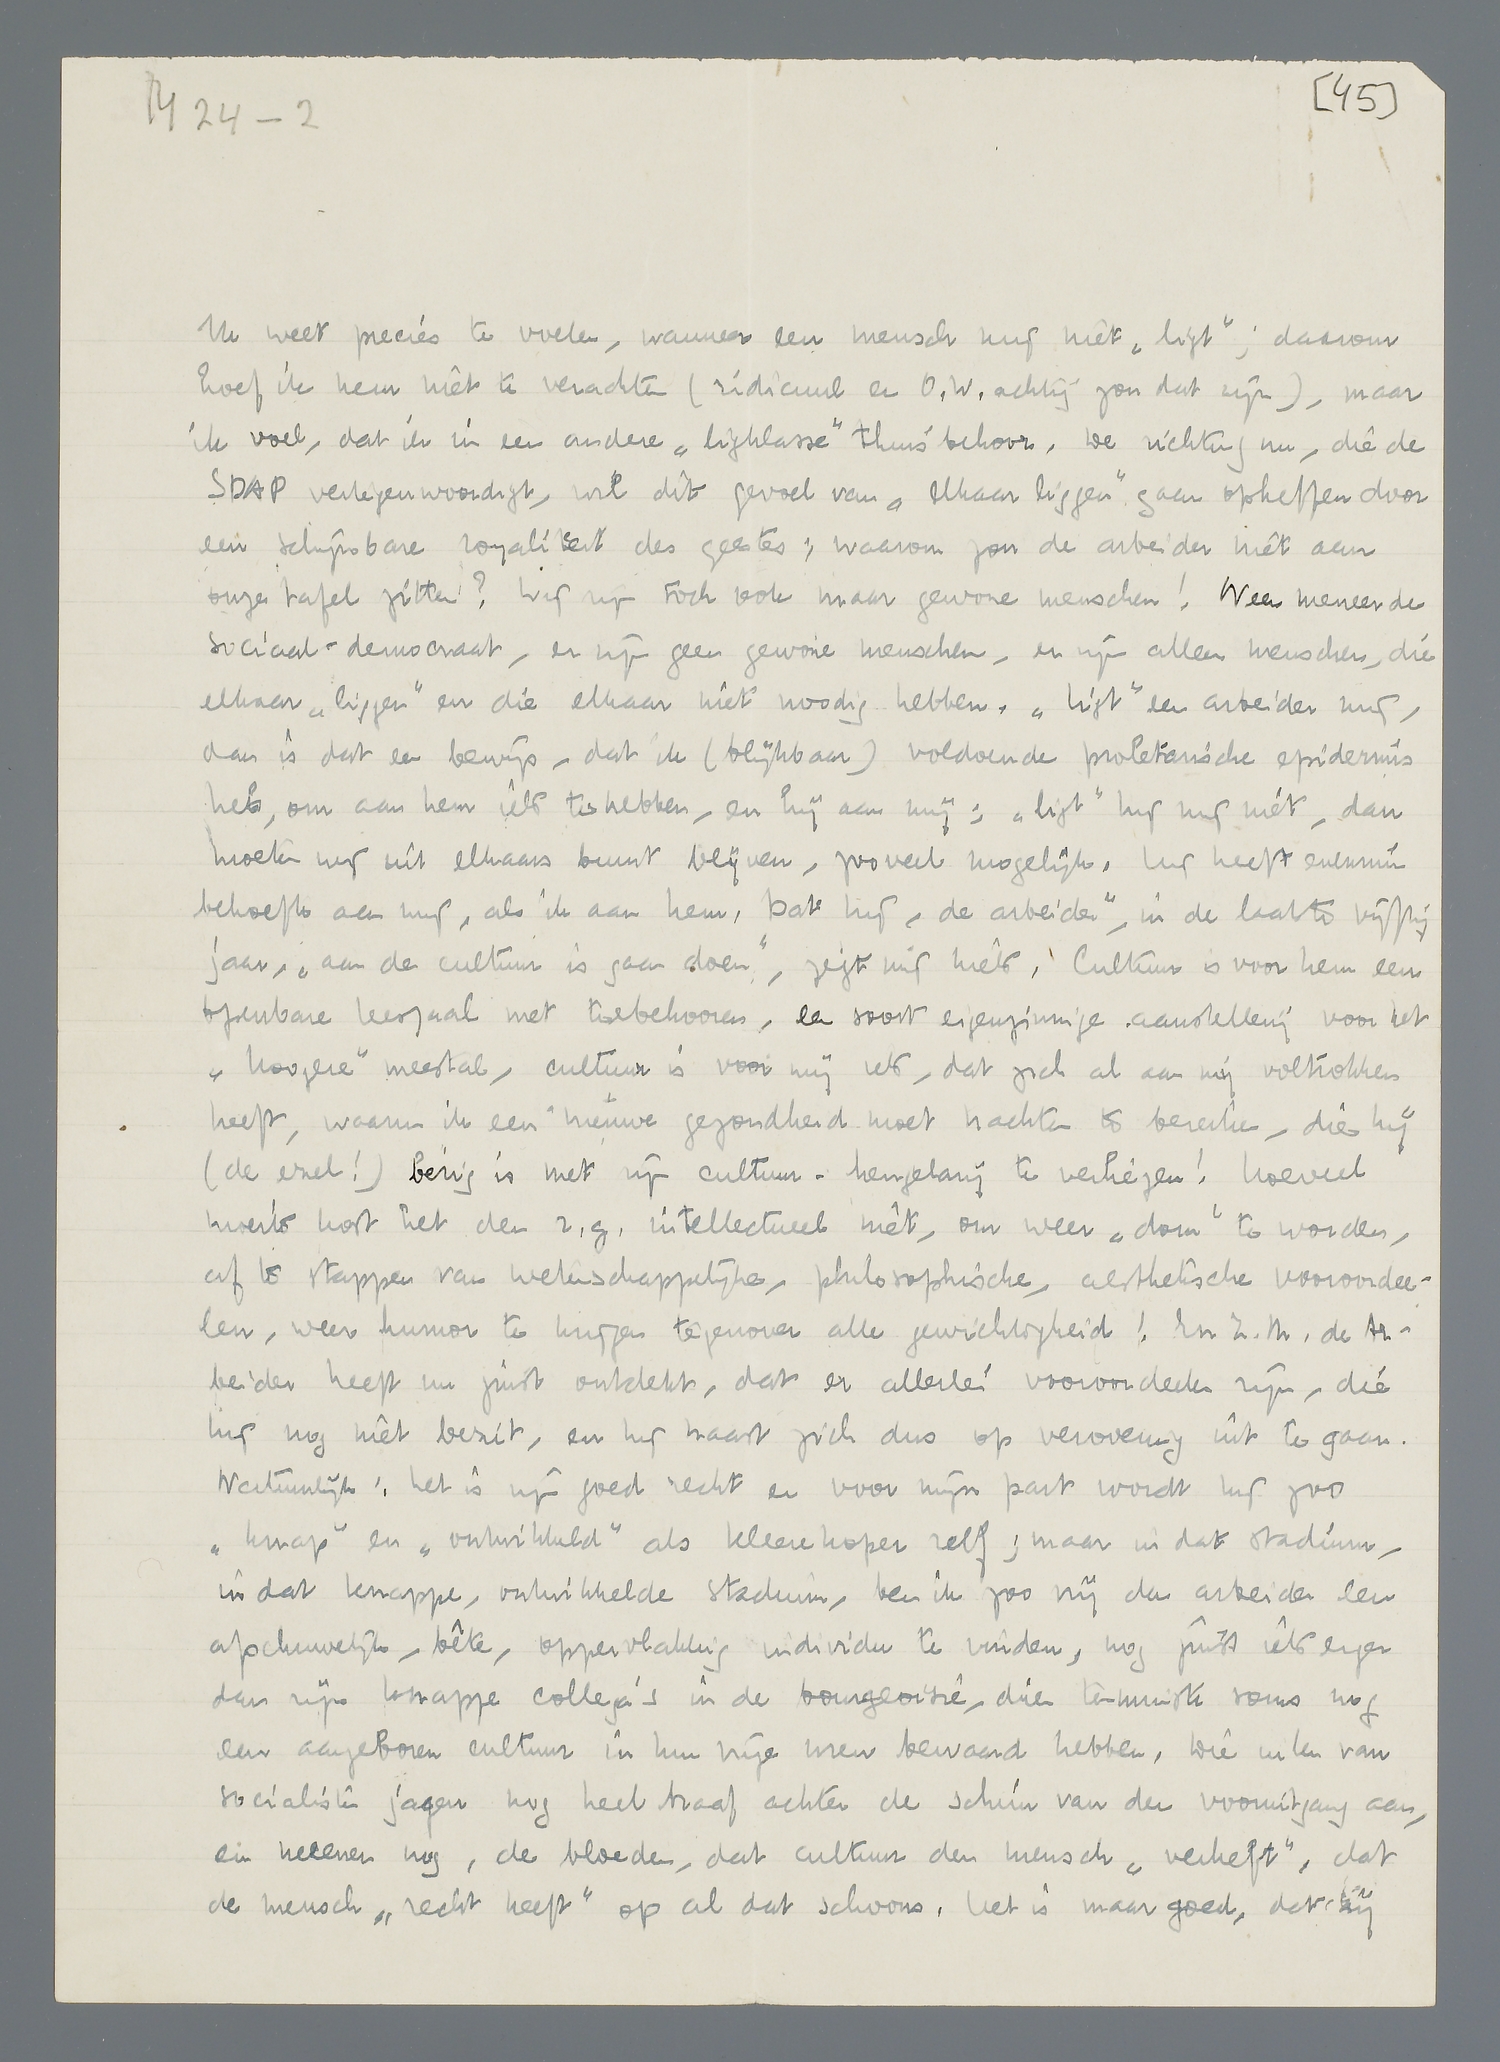 M 24-2
[45]
Ik weet precies te voelen, wanneer een mensch mij niet „ligt"; daarom
hoef ik hem niet te verachten (ridicuul en O.W. achtig zou dat zijn), maar
ik voel, dat ik in een andere „ligklasse" thuis behoor. De richting nu, die de
SDAP vertegenwoordigt, wil dit gevoel van „elkaar liggen" gaan opheffen door
een schijnbare royaliteit des geestes; waarom zou de arbeider niet aan
onze tafel zitten? Wij zijn toch ook maar gewone menschen! Neen meneer de
sociaal-democraat, er zijn geen gewone menschen, er zijn alleen menschen, die
elkaar „liggen" en die elkaar niet noodig hebben. „Ligt" een arbeider mij,
dan is dat een bewijs, dat ik (blijkbaar) voldoende proletarische epidermis
heb, om aan hem iets te hebben, en hij aan mij; „ligt" hij mij niet, dan
moeten wij uit elkaars buurt blijven, zooveel mogelijk. Hij heeft evenmin
behoefte aan mij, als ik aan hem. Dat hij, „de arbeider", in de laatste vijftig
jaar, „aan de cultuur is gaan doen", zegt mij niets. Cultuur is voor hem een
openbare leeszaal met toebehooren, een soort eigenzinnige aanstellerij voor het
„hoogere" meestal, cultuur is voor mij iets, dat zich al aan mij voltrokken
heeft, waarin ik een nieuwe gezondheid moet trachten te bereiken, die hij
(de ezel!) bezig is met zijn cultuur-hengelarij te verliezen! Hoeveel
moeite kost het den z.g. intellectueel niet, om weer „dom" te worden,
af te stappen van wetenschappelijke, philosophische, aesthetische vooroordee-
len, weer humor te krijgen tegenover alle gewichtigheid! En Z.M. de Ar-
beider heeft nu juist ontdekt, dat er allerlei vooroordeelen zijn, die
hij nog niet bezit, en hij haast zich dus op verovering uit te gaan.
Natuurlijk: het is zijn goed recht en voor mijn part wordt hij zoo
„knap" en „ontwikkeld" als Kleerekoper zelf; maar in dat stadium,
in dat knappe, ontwikkelde stadium, ben ik zoo vrij den arbeider een
afschuwelijk, bête, oppervlakkig individu te vinden, nog juist iets erger
dan zijn knappe collega's in de bourgeoisie, die tenminste soms nog
een aangeboren cultuur in hun vrije uren bewaard hebben. Die uilen van
socialisten jagen nog heel braaf achter de schim van den vooruitgang aan,
en meenen nog, de bloeden, dat cultuur den mensch „verheft", dat
de mensch „recht heeft" op al dat schoons. Het is maar goed, dat zij